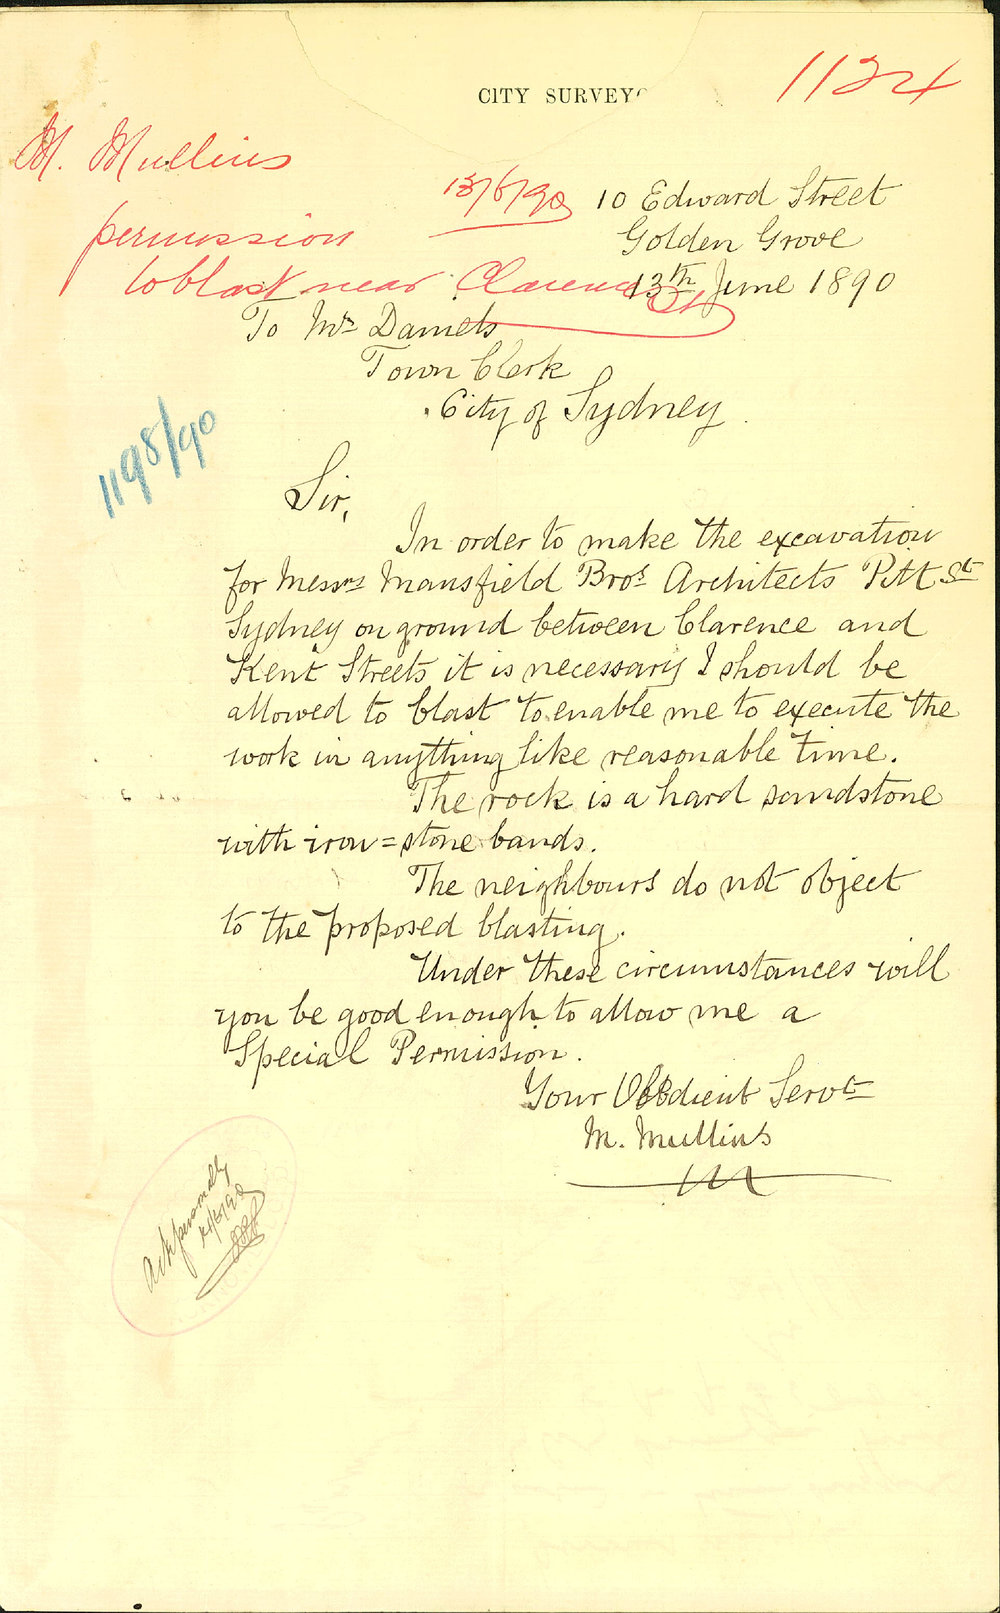 CITY SURVEYO
1124
M. Mullins
permission
to blast near Clarence St
13/6/90
10 Edward Street
Golden Grove
13th June 1890
To Mr Daniels
Town Clerk
City of Sydney.
1198/90
Sir,
In order to make the excavation
for Messrs Mansfield Bros Architects Pitt St
Sydney on ground between Clarence and
Kent Streets it is necessary I should be
allowed to blast to enable me to execute the
work in anything like reasonable time.
The rock is a hard sandstone
with iron=stone bands.
The neighbours do not object
to the proposed blasting.
Under these circumstances will
you be good enough to allow me a
Special Permission.
Your Obedient Servt
M. Mullins
Ack personally